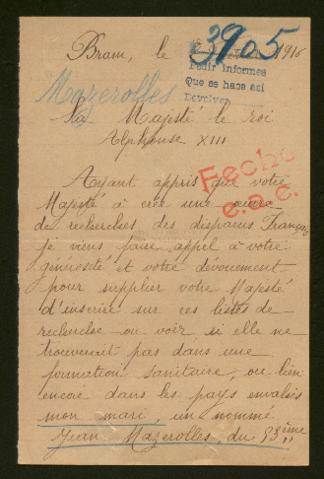 Bram, le 1916
3905
Pedir informes
Que se hace así
Devolver
Mazerolles
Sa Majesté le roi
Alphonse XIII
Fecho
e.a.c.
Ayant appris que votre
Majesté à créé une œuvre
de recherches des disparus Français
je viens faire appel à votre
générosité et votre dévouement
pour supplier votre Majesté
d'inscrire sur ces listes de
recherche ou voir si elle ne
trouverait pas dans une
formation sanitaire, ou bien
encore dans les pays envahis
mon mari, un nommé
Jean Mazerolles, du 53ème